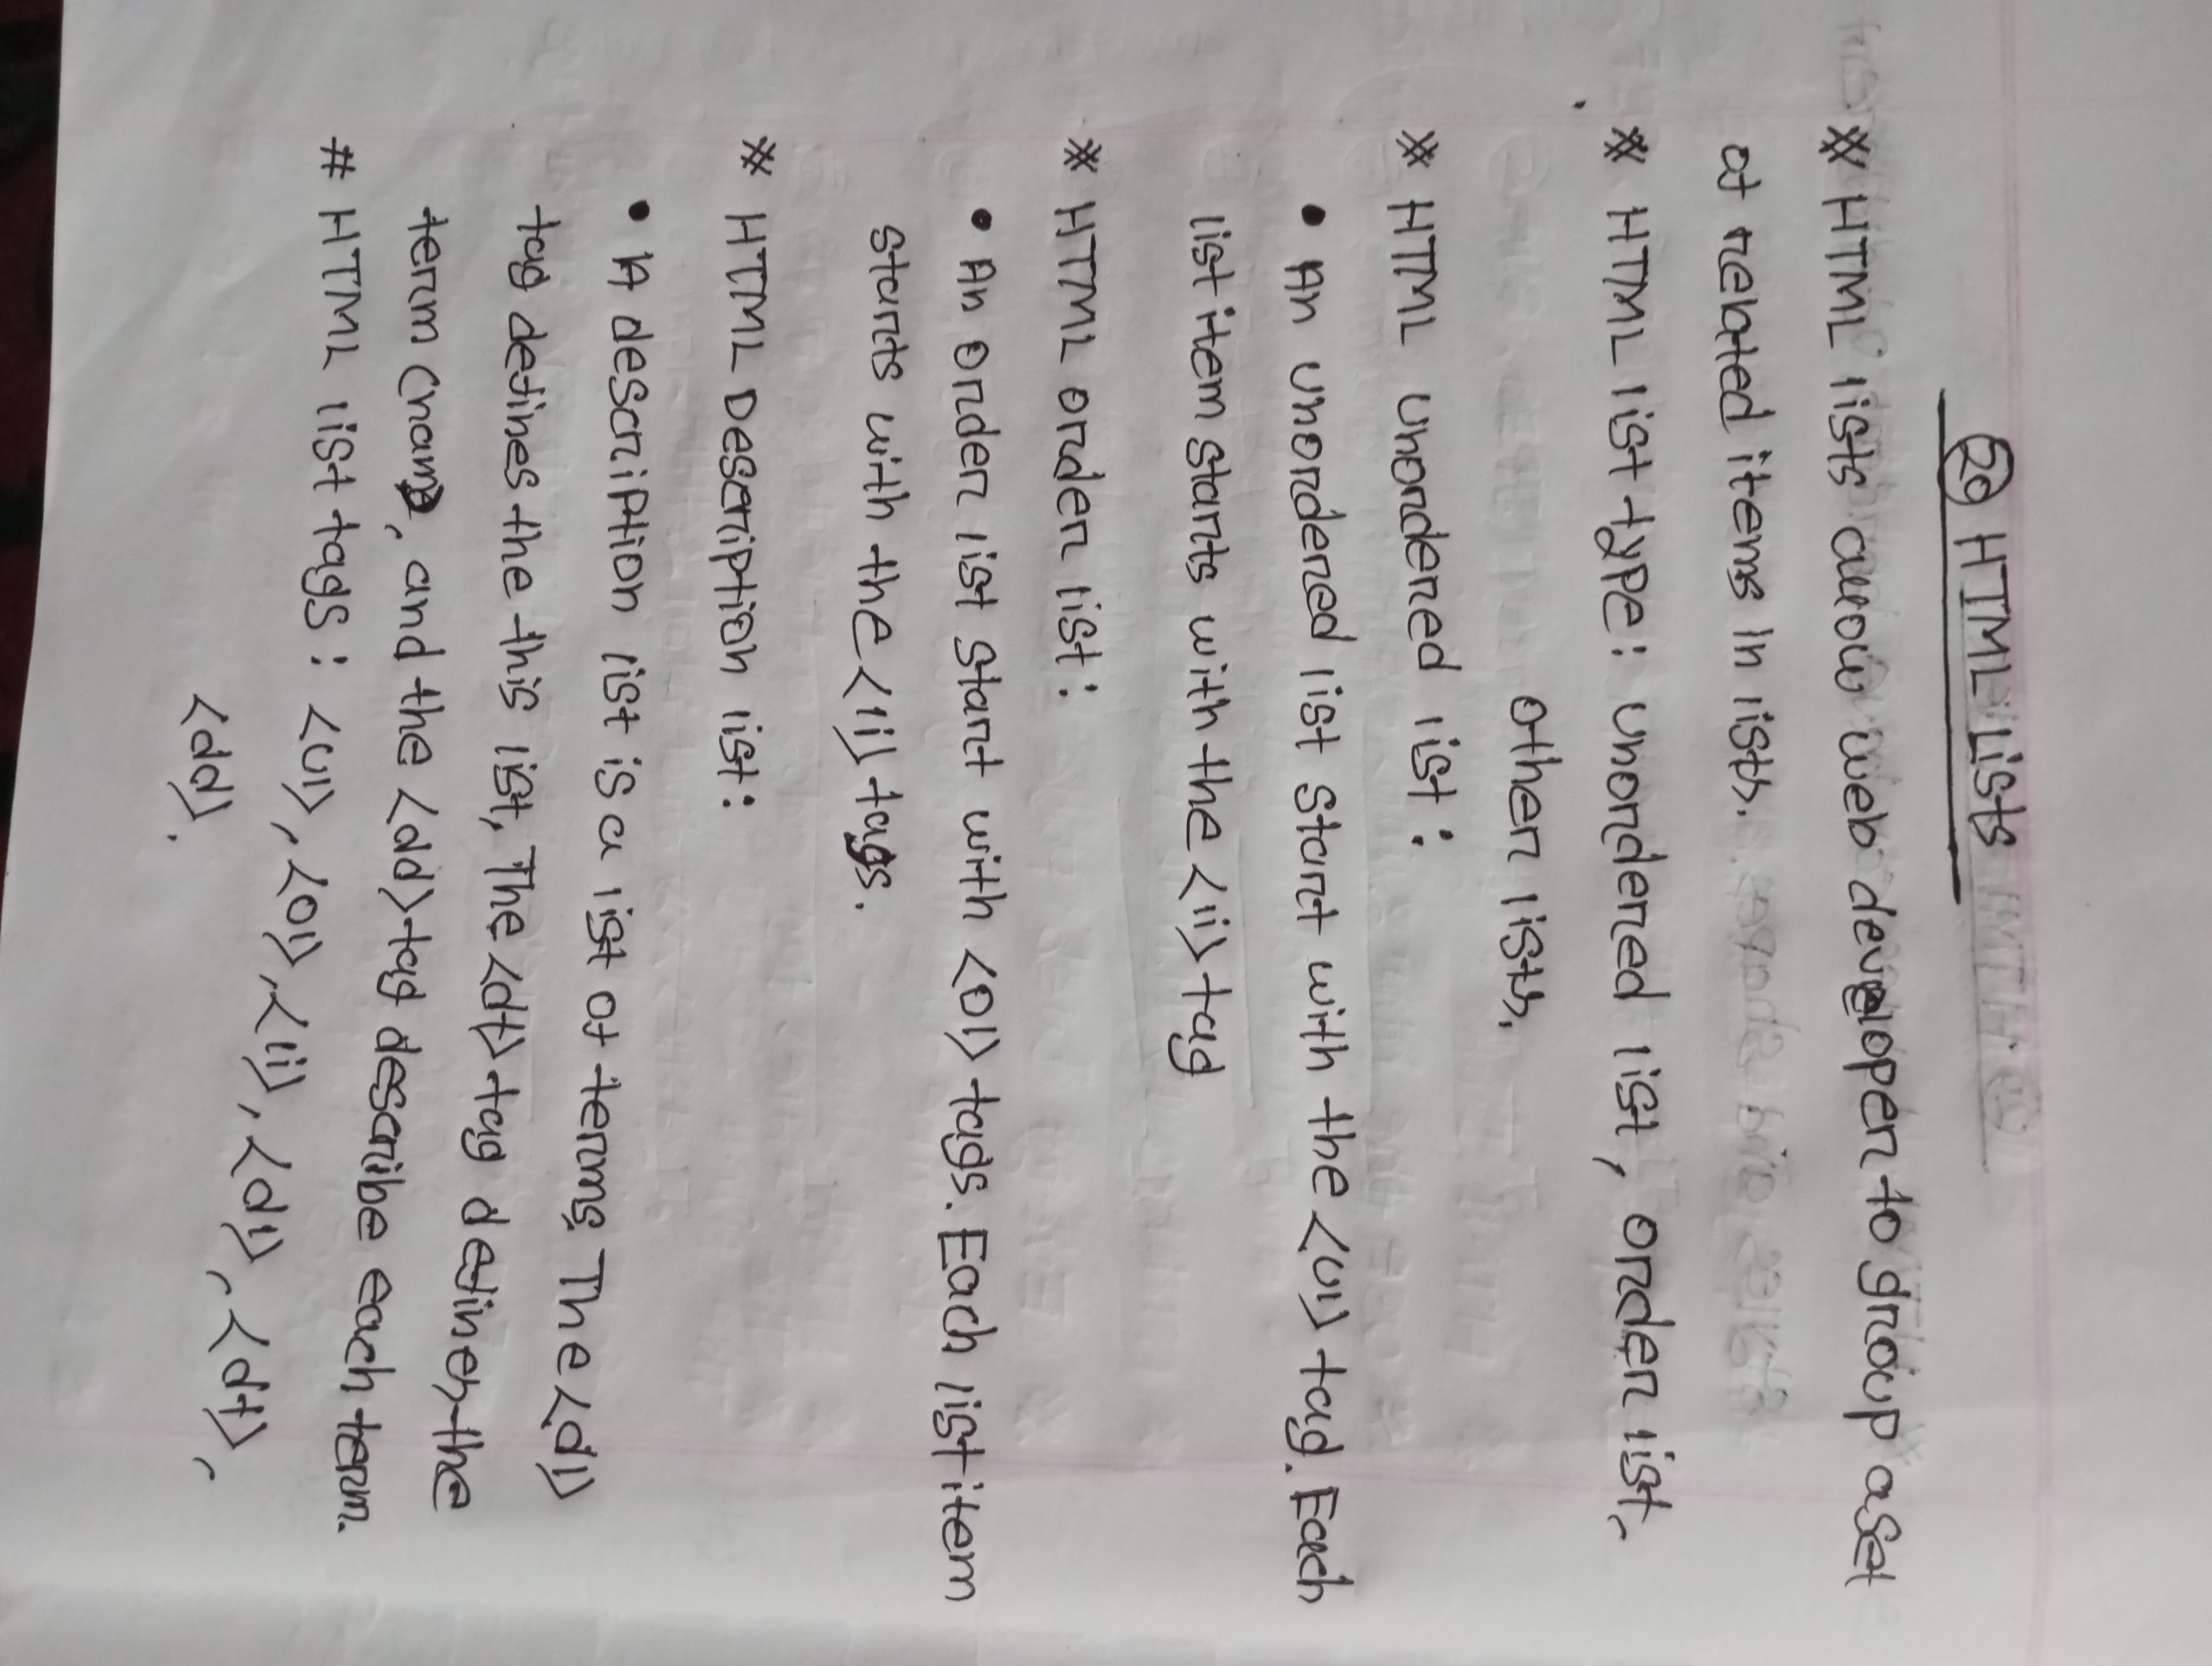 20 HTML Lists
* HTML lists allow web developer to group a set
of related items in lists.
* HTML list type: Unordered list, order list,
other lists.
* HTML Unordered list:
• An unordered list start with the <ul> tag. Each
list item starts with the <li> tag
* HTML order list:
• An order list start with <ol> tags. Each list item
starts with the <li> tags.
* HTML Description list:
• A description list is a list of terms. The <dl>
tag defines the this list, The <dt> tag defines the
term (name), and the <dd> tag describe each term.
# HTML list tags: <ul>, <ol>, <li>, <dl>, <dt>,
<dd>.